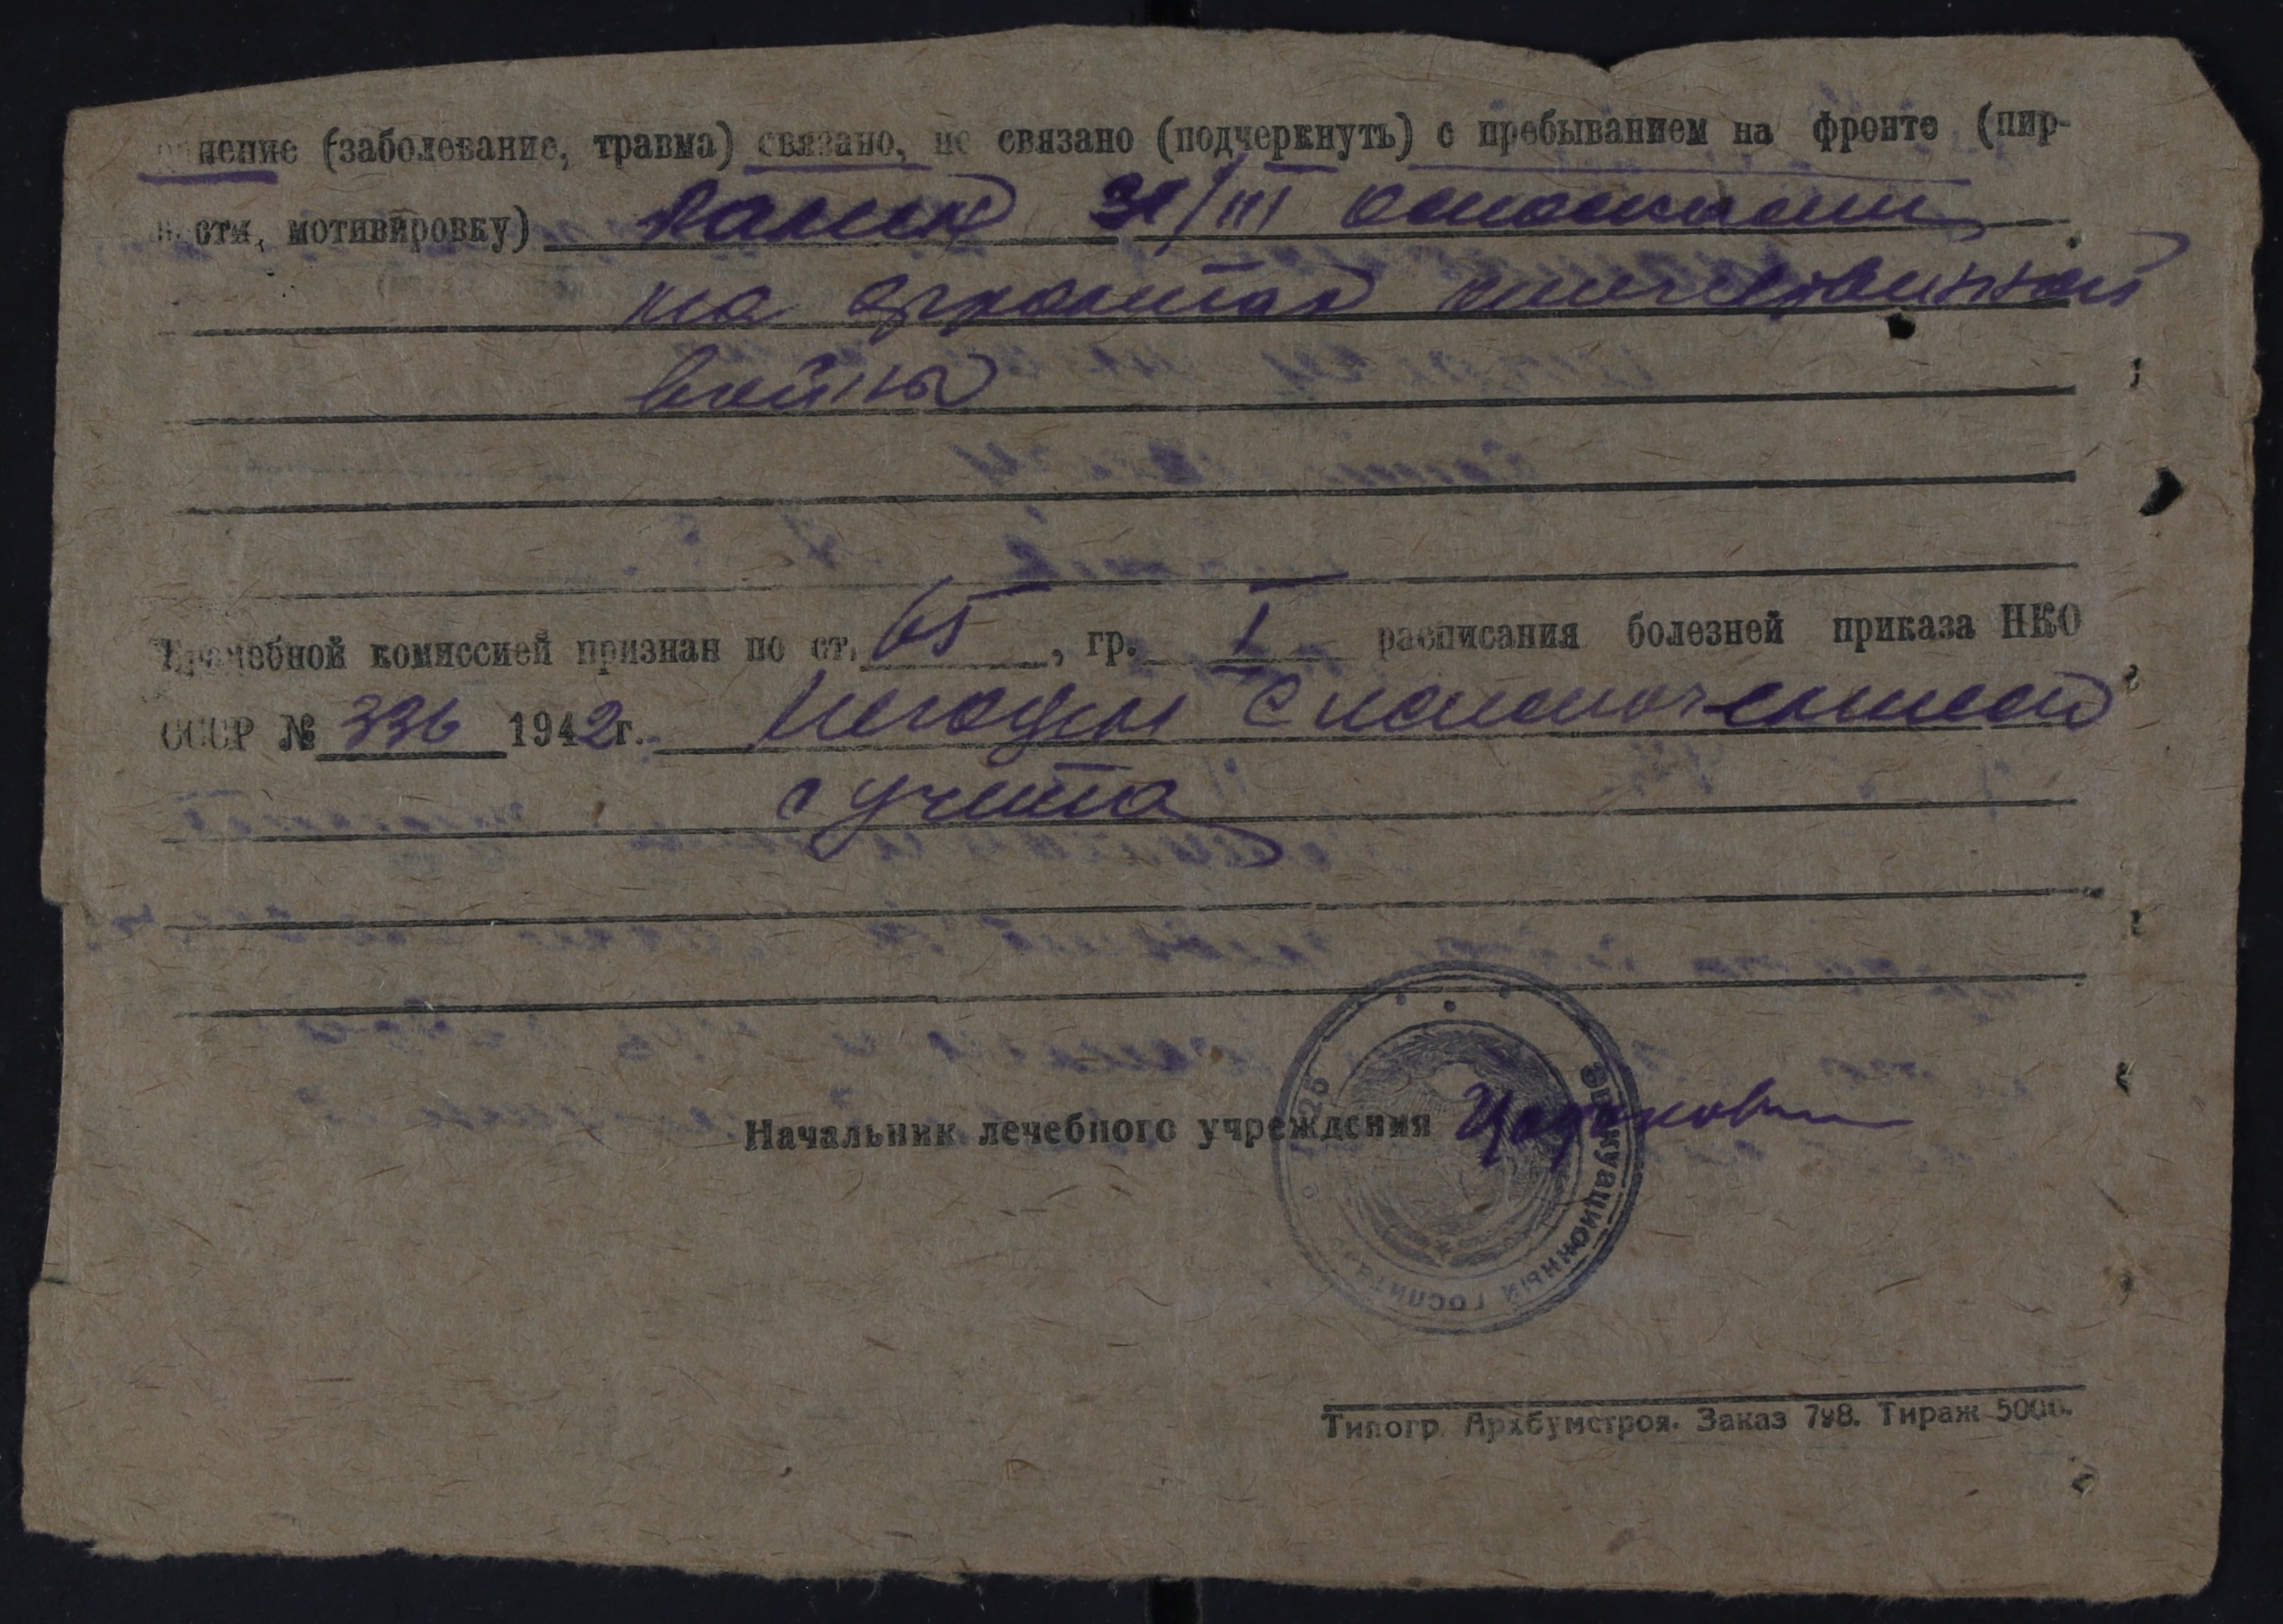 нение (заболевание, травма) связано, не связано (подчеркнуть) с пребыванием на фронте (пир-
ости, мотивировку) Ранен 31/III
на фронтах отечественной
войны
Врачебной комиссией признан по ст. 65, гр. I расписания болезней приказа НКО
СССР № 336 1942 г. Негоден с исключением
с учета
Начальник лечебного учреждения
Эвакуационный госпиталь
Типогр. Архбумстроя. Заказ 798. Тираж 5000.